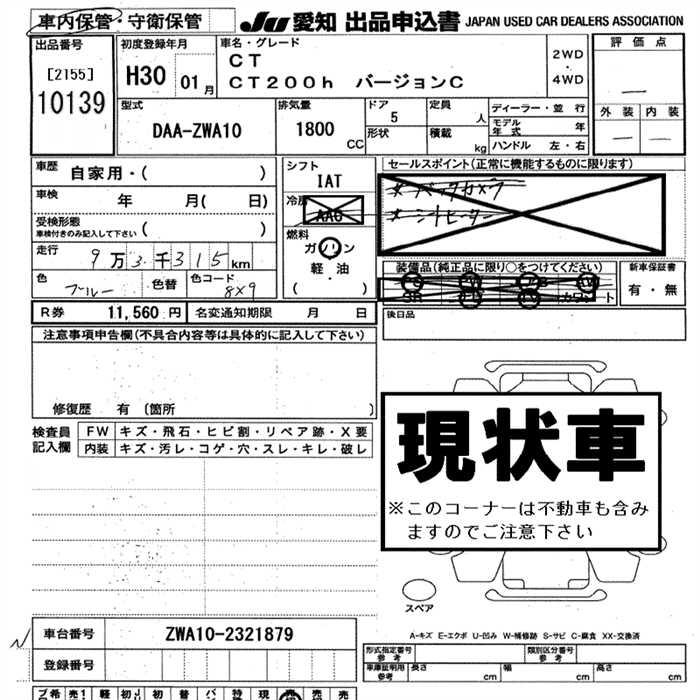 車内保管・守衛保管
JU 愛知 出品申込書 JAPAN USED CAR DEALERS ASSOCIATION
出品番号
[2155]
10139
初度登録年月
H30 01月
車名・グレード
CT
CT200h バージョンC
2WD
・
4WD
評価点
―
外装 内装
― ―
型式
DAA-ZWA10
排気量
1800 CC
ドア
5
形状
定員
人
積載
kg
ディーラー・並行
モデル年式 年
ハンドル 左・右
車歴 自家用・( )
車検 年 月( 日)
受検形態
車検付きのみ記入して下さい ( )
走行 9万3千315km
色 ブルー
色替
色コード
8X9
シフト
IAT
冷房
AAC
燃料
ガソリン
軽・油
( )
セールスポイント(正常に機能するものに限ります)
バックカメラ
シートヒーター
装備品(純正品に限り○をつけてください)
新車保証書
有・無
R券 11,560 円
名変通知期限 月 日
後日品
注意事項申告欄(不具合内容等は具体的に記入して下さい)
修復歴 有 [箇所 ]
検査員記入欄
FW キズ・飛石・ヒビ割・リペア跡・X要
内装 キズ・汚レ・コゲ・穴・スレ・キレ・破レ
現状車
※このコーナーは不動車も含み
ますのでご注意下さい
スペア
A-キズ E-エクボ U-凹み W-補修跡 S-サビ C-腐食 XX-交換済
車台番号 ZWA10-2321879
登録番号
形式指定番号
参考
類別区分番号
参考
車庫証明用
参考
長さ cm 幅 cm 高さ cm